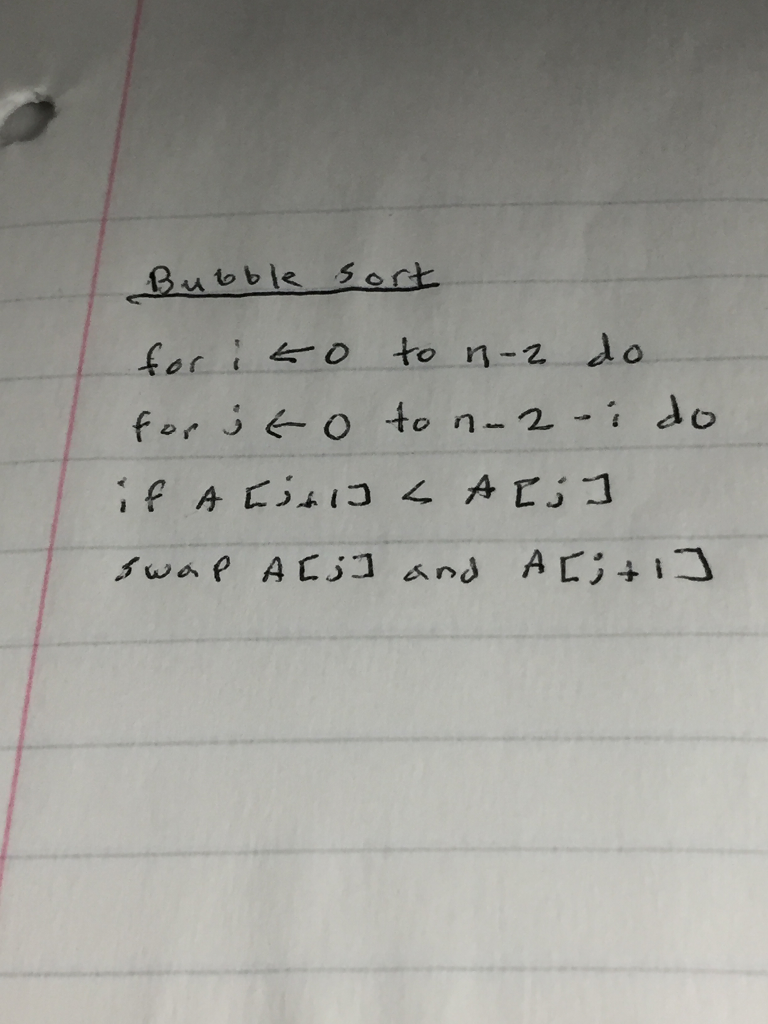 Bubble sort
for i ← 0 to n-2 do
for j ← 0 to n-2-i do
if A[j+1] < A[j]
swap A[j] and A[j+1]